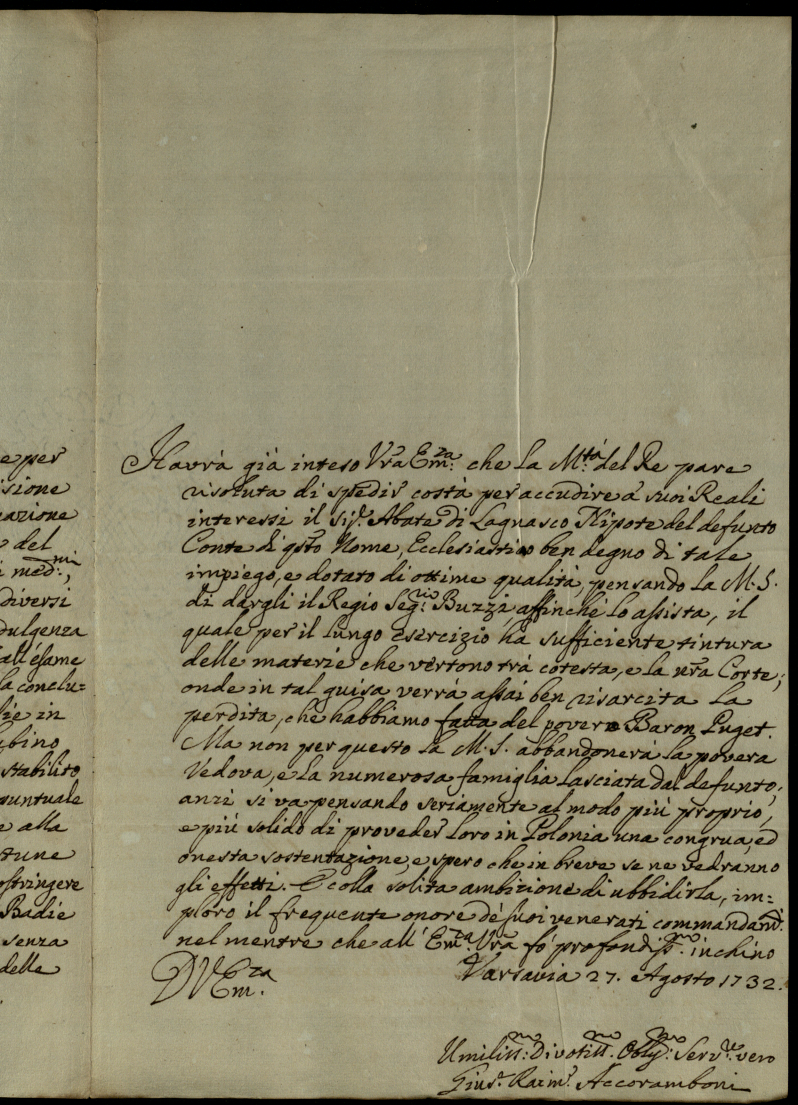 e per
isione
nazione
e del
i med.mi,
diversi
dulgenza
all'esame
la conclu-
die in
bino
stabilito
puntuale
e alla
tune
ostringere
Badie
senza
delle
Havrà già inteso Vra Em.za che la M.tà del Re pare
risoluta di spedir costà per accudire a' suoi Reali
interessi il sig.r Abate di Lagnasco Nipote del defunto
Conte di qsto Nome, Ecclesiastico ben degno di tale
impiego, e dotato di ottime qualità, pensando la M.S.
di dargli il Regio Seg.rio Buzzi, affinché lo assista, il
quale per il lungo esercizio ha sufficiente tintura
delle materie che vertono trà cotesta, e la nra Corte;
onde in tal guisa verrà assai ben risarcita la
perdita, che habbiamo fatta del povero Baron Puget.
Ma non per questo la M.S. abbandonerà la povera
Vedova, e la numerosa famiglia lasciata dal defunto;
anzi si va pensando seriamente al modo più proprio,
e più solido di proveder loro in Polonia una congrua, ed
onesta sostentazione, e spero che in breve se ne vedranno
gli effetti. E colla solita ambizione di ubbidirla, im=
ploro il frequente onore de' suoi venerati commandam.ti
nel mentre che all' Em.za Vra fò profondiss.mo inchino
D V Em.za Varsavia 27. Agosto 1732.
Umiliss:mo Divotiss.mo Oblig:mo Serv.re vero
Gius.e Raim.o Accoramboni